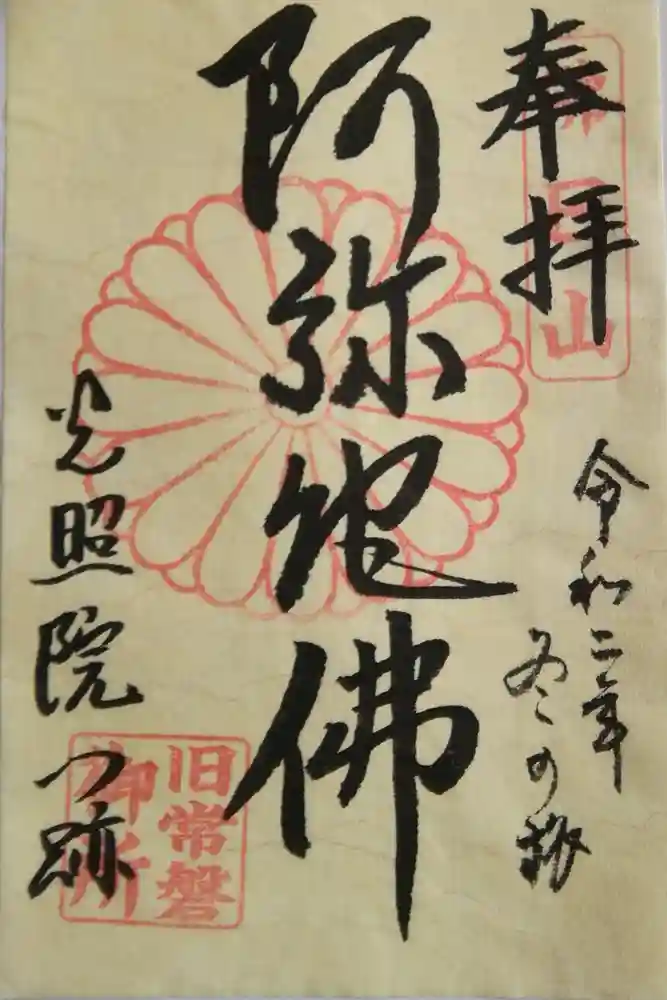 奉拝
佛日山
令和二年
冬の旅
阿弥陀佛
光照院門跡
旧常磐
御所